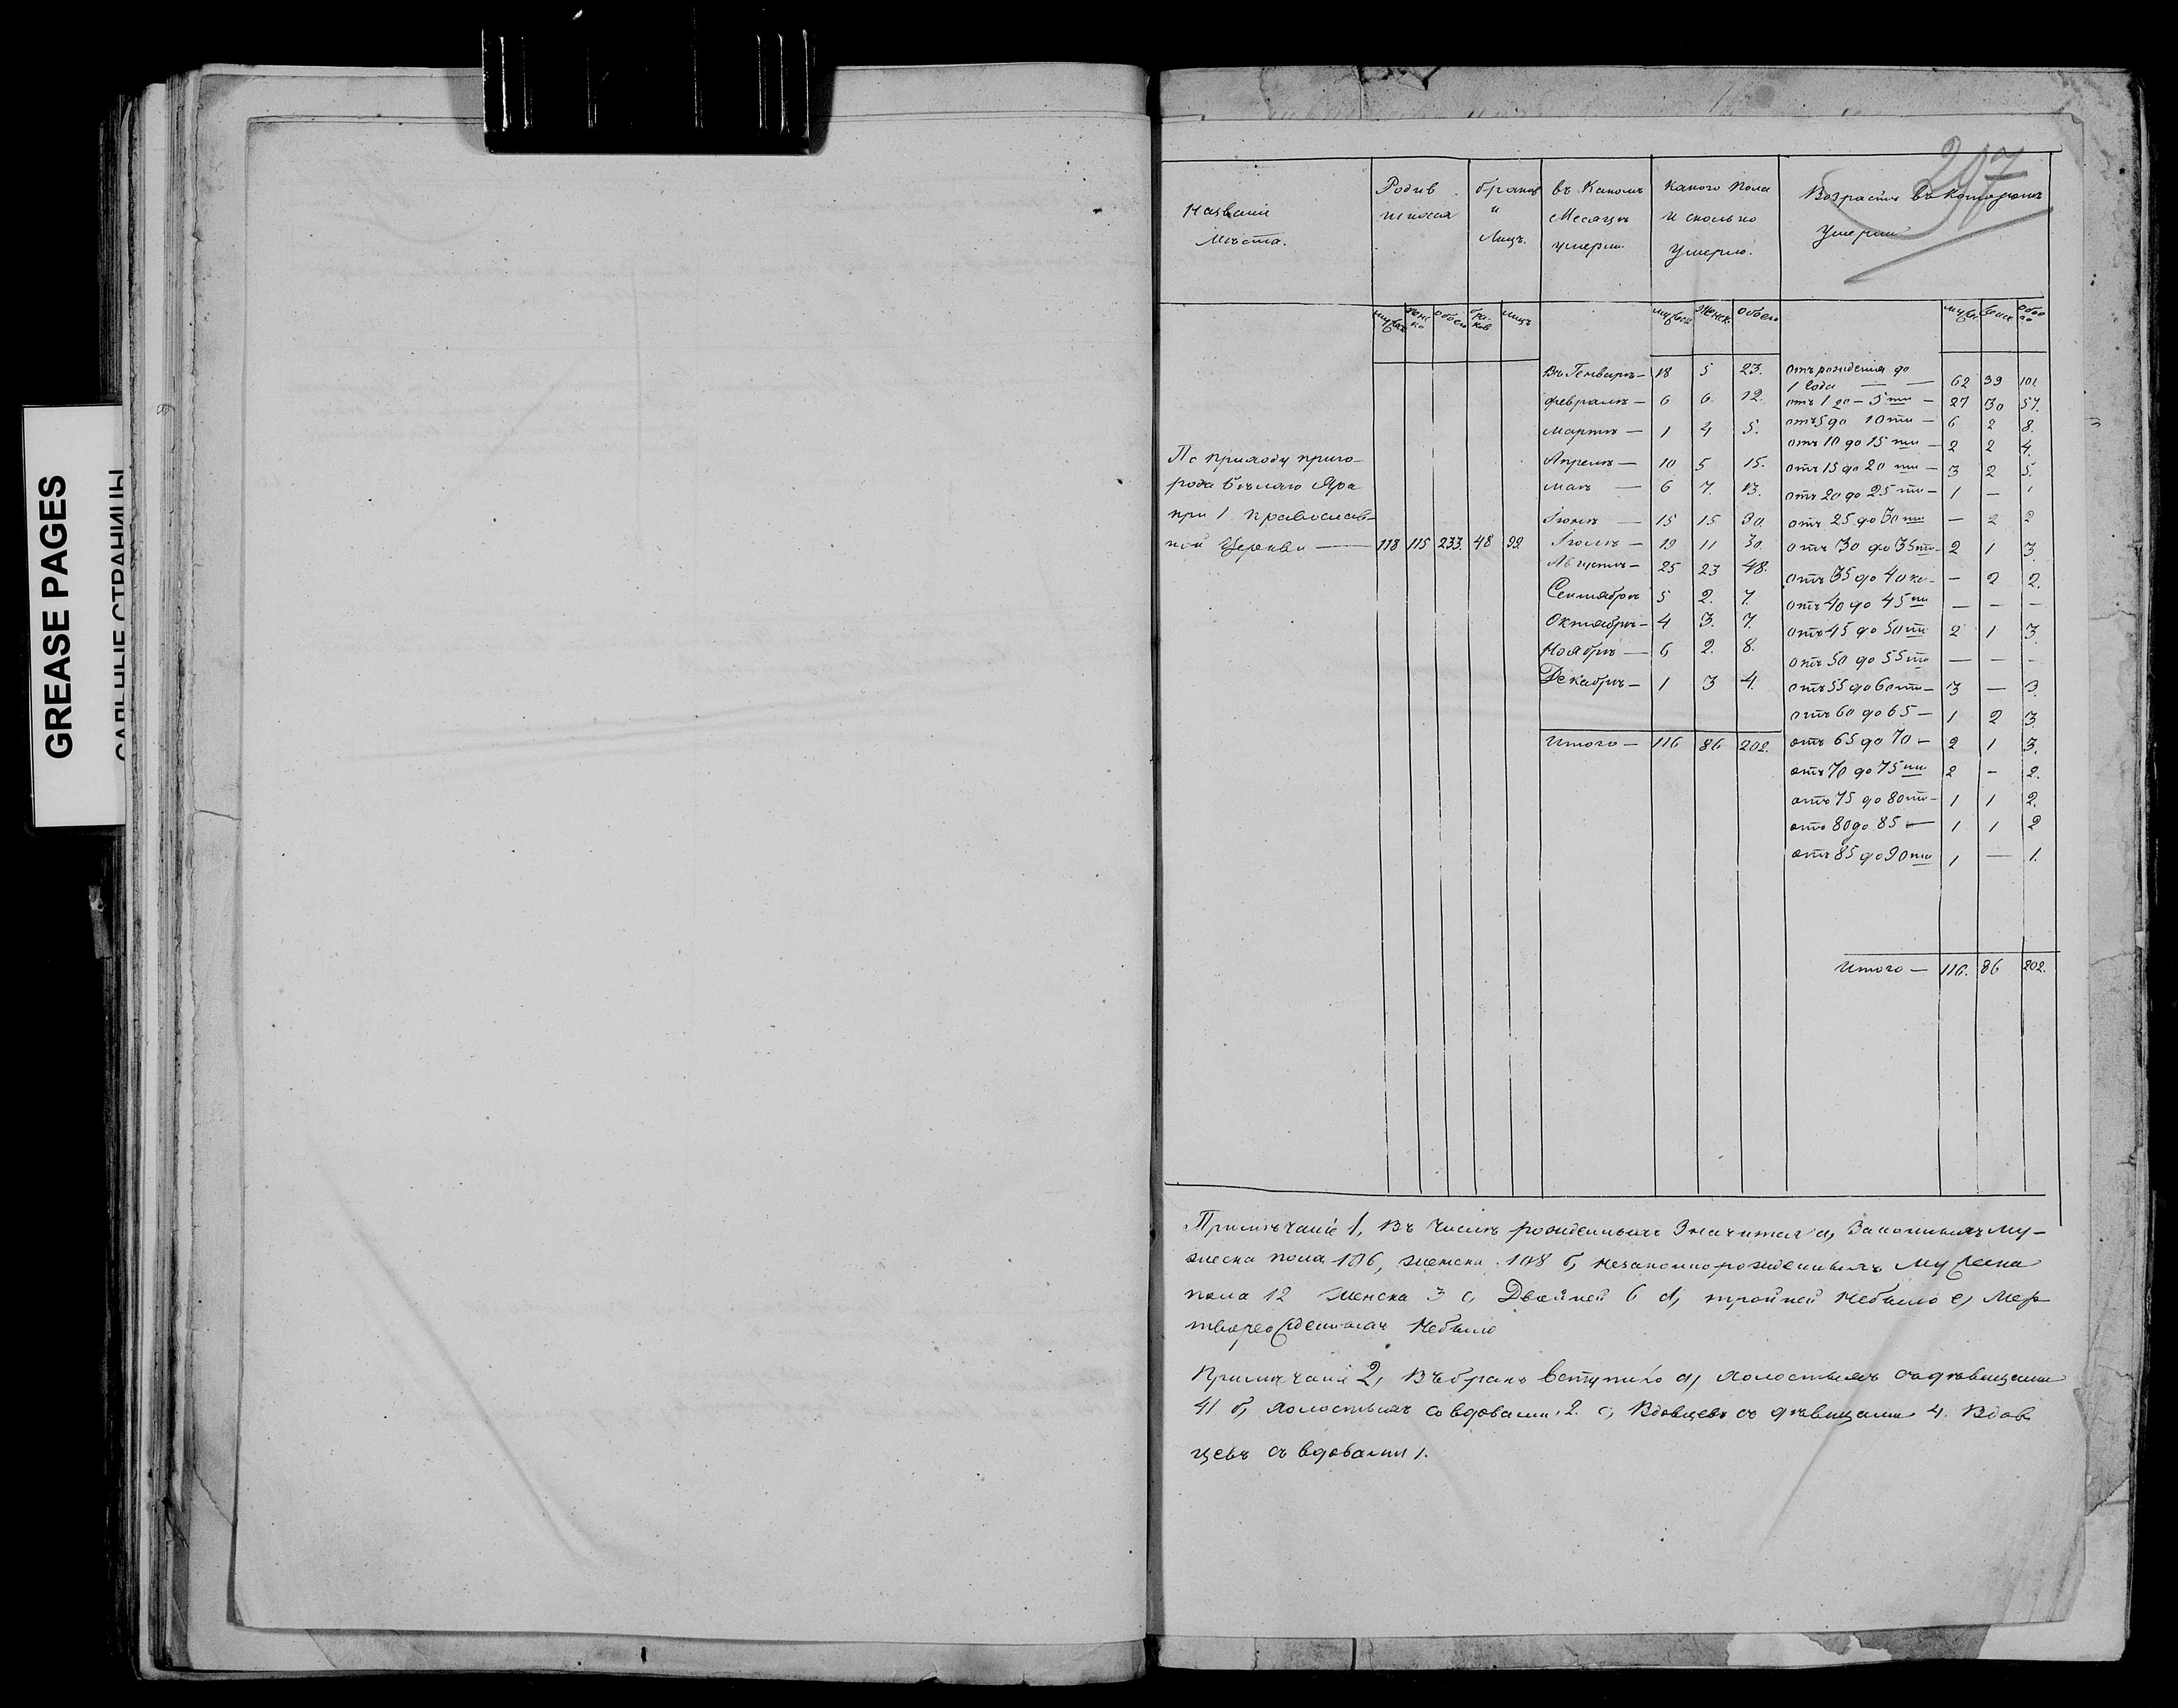 GREASE PAGES
САЛЬНЫЕ СТРАНИЦЫ
217
Названіе мѣста.
Родив шихся
браков и Лицъ.
въ Какомъ Мѣсяцѣ умерли.
Какого Пола и сколько Умерло.
Возрастъ въ которомъ Умерли
мужск женско обоего бра-ков лицъ мужск женск. обоего мужс. женск обоего
Въ Генварѣ — 18 5 23. отъ рожденія до
1 года — 62 39 101.
Февралѣ — 6 6. 12. отъ 1 до — 5ти — 27 30 57.
Мартѣ — 1 4 5. отъ 5 до 10ти — 6 2 8.
отъ 10 до 15ти — 2 2 4.
Апрелѣ — 10 5 15. отъ 15 до 20ти — 3 2 5.
Маѣ — 6 7. 13. отъ 20 до 25ти — 1 — 1
Іюнѣ — 15 15 30 отъ 25 до 30ти — 2 2
По приходу приго-
рода Бѣлаго Яра
при 1 православ-
ной Церкви — 118 115 233. 48 99. Іюлѣ — 19 11 30. отъ 30 до 35ти — 2 1 3.
Августѣ — 25 23 48. отъ 35 до 40ка — — 2 2.
Сентябрѣ 5 2. 7. отъ 40 до 45ти — — —
Октябрѣ — 4 3. 7. отъ 45 до 50ти 2 1 3
Ноябрѣ — 6 2. 8. отъ 50 до 55ти — — —
Декабрѣ — 1 3 4. отъ 55 до 60ти — 3 — 3.
отъ 60 до 65 — 1 2 3.
Итого — 116 86 202. отъ 65 до 70 — 2 1 3.
отъ 70 до 75ти 2 — 2.
отъ 75 до 80ти — 1 1 2.
отъ 80 до 85 — 1 1 2
отъ 85 до 90то 1 — 1.
Итого — 116. 86 202.
Примѣчаніе 1, Въ числѣ рожденныхъ Значится а, Законныхъ му-
жеска пола 106, женска 108 б, незаконнорожденныхъ мужеска
пола 12 женска 3 с, Двойней 6 d, тройней небыло е, мер
творожденныхъ Небыло
Примѣчаніе 2, Въ бракъ вступило а, холостыхъ съ дѣвицами
41 б, холостыхъ со вдовами 2. с, Вдовцевъ съ дѣвицами 4. Вдов
цевъ съ вдовами 1.